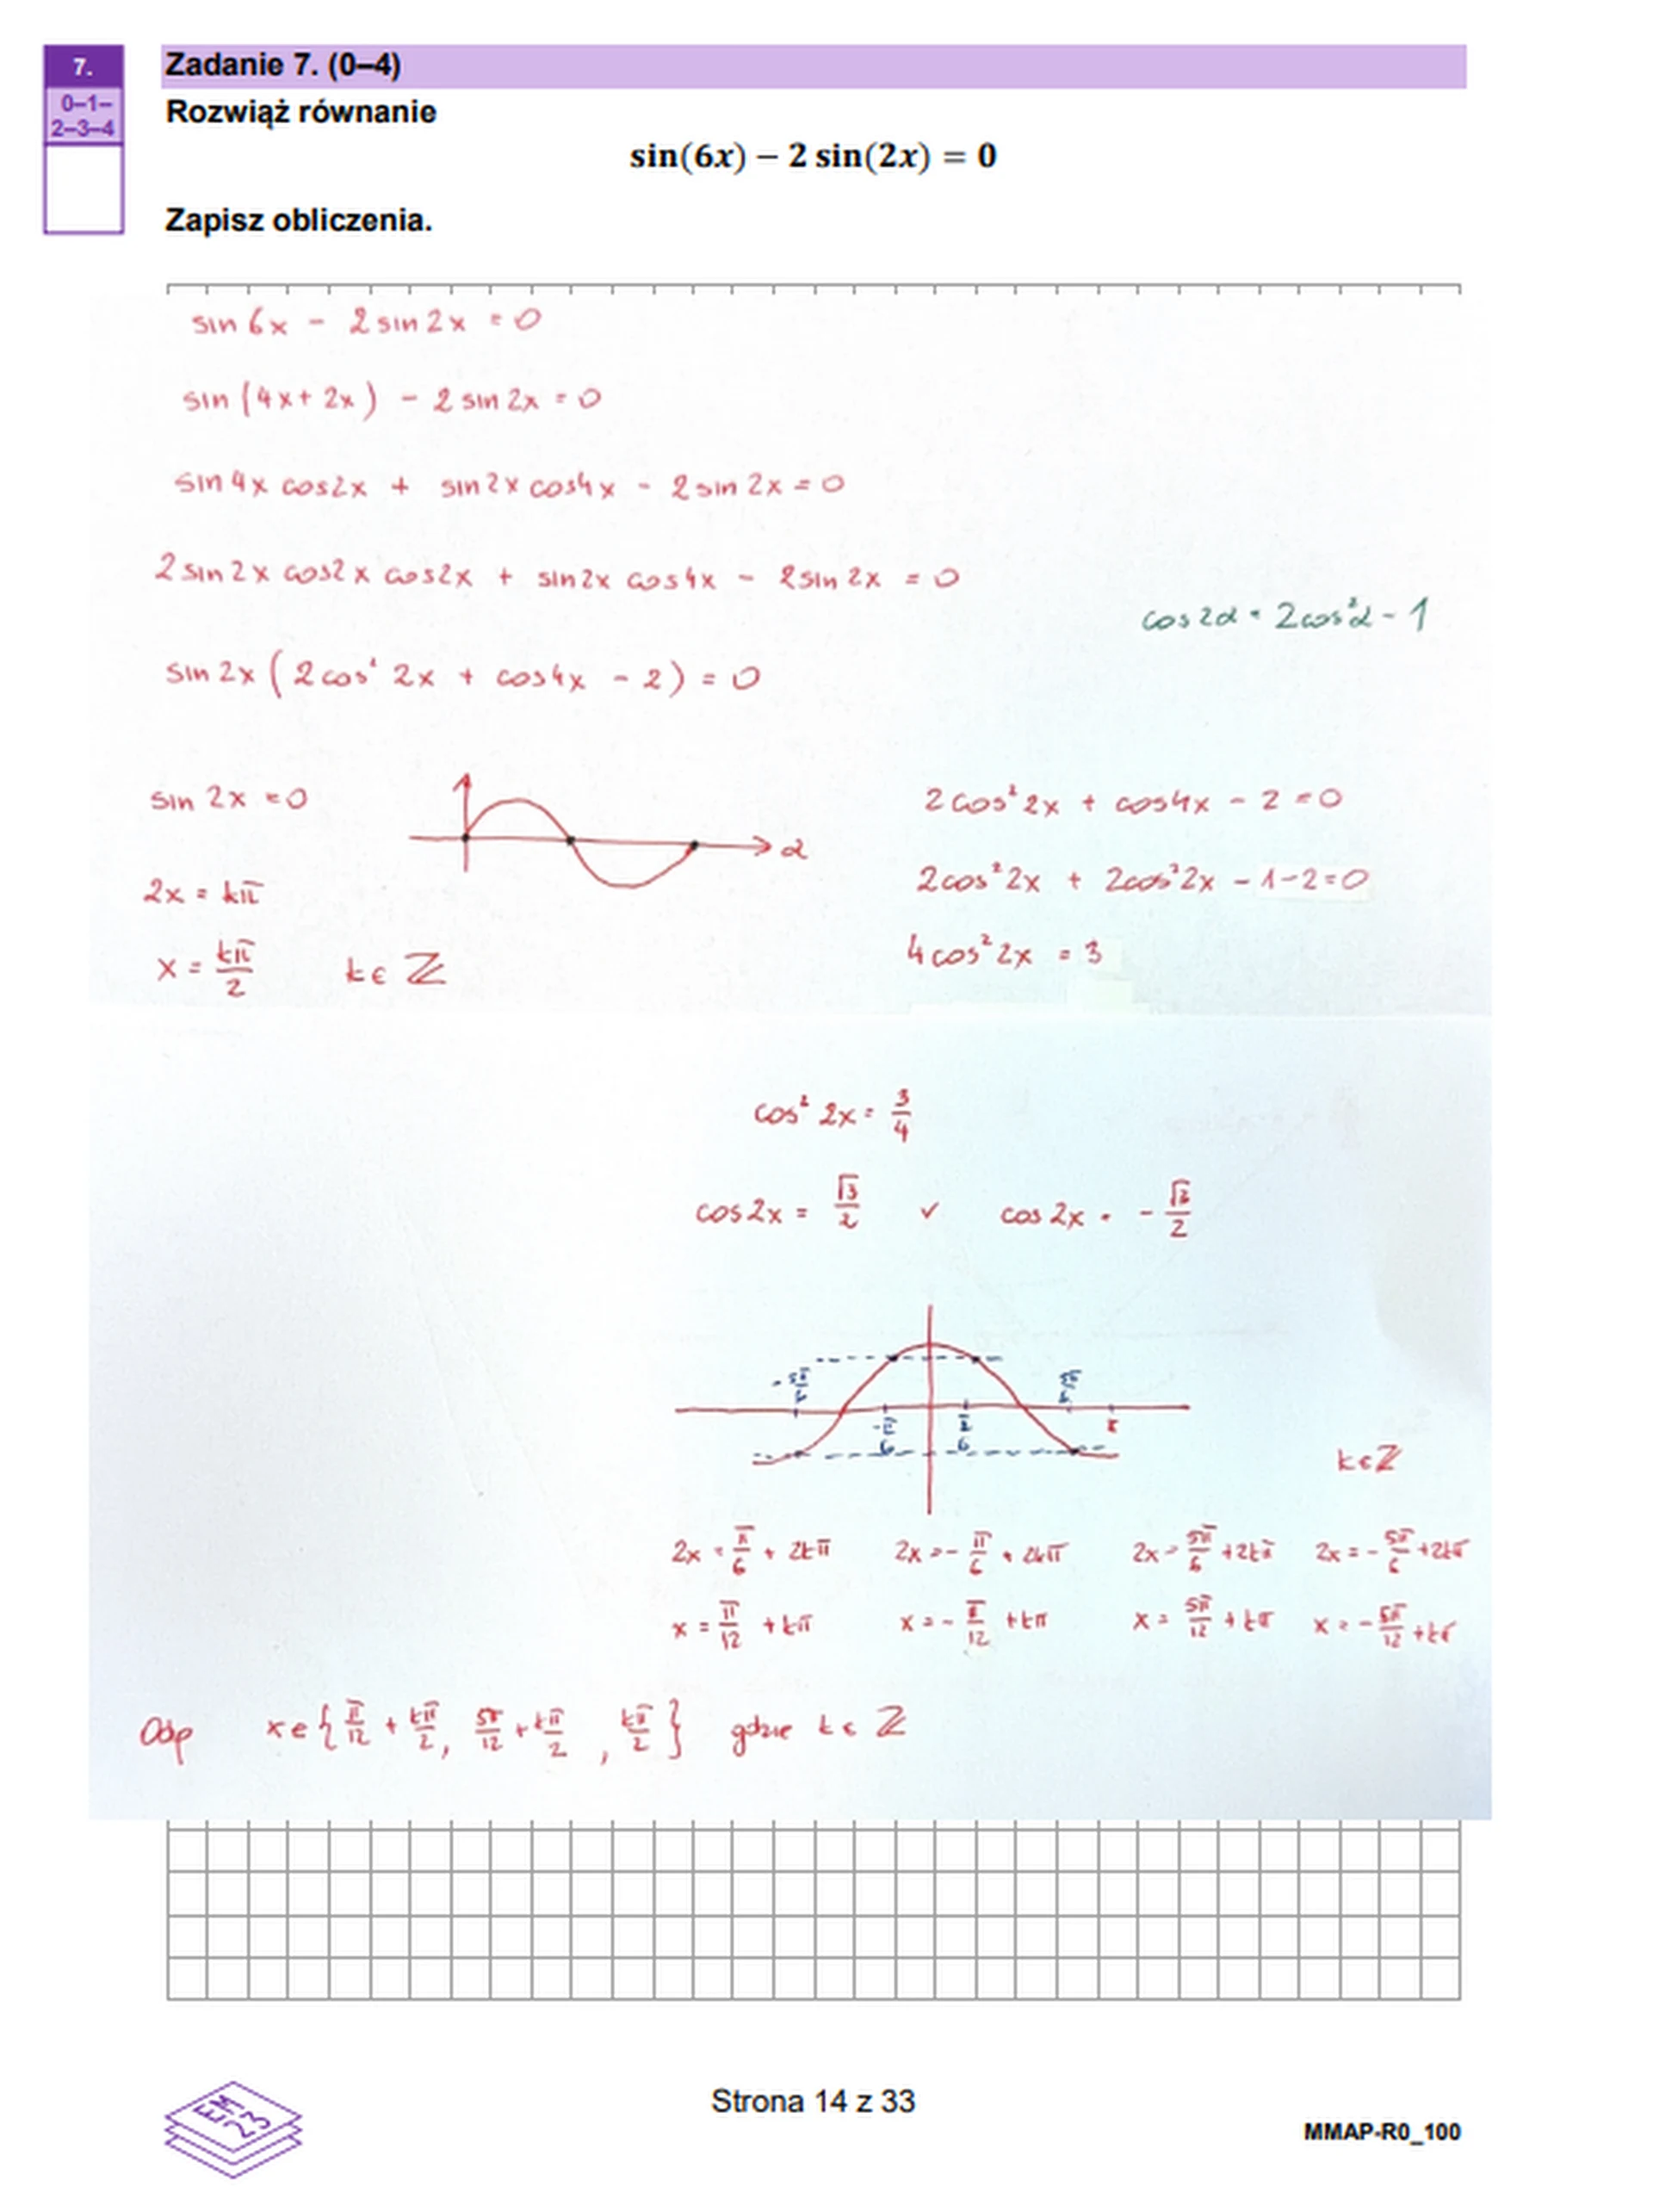 7.
Zadanie 7. (0–4)
0–1–
2–3–4
Rozwiąż równanie
sin(6x) − 2 sin(2x) = 0
Zapisz obliczenia.
sin 6x - 2 sin 2x = 0
sin (4x + 2x) - 2 sin 2x = 0
sin 4x cos2x + sin 2x cos4x - 2 sin 2x = 0
2 sin 2x cos2x cos2x + sin2x cos4x - 2sin 2x = 0
cos 2α = 2cos²α - 1
sin 2x (2 cos² 2x + cos4x - 2) = 0
sin 2x = 0
α
2 cos² 2x + cos4x - 2 = 0
2x = kπ
2cos² 2x + 2cos² 2x - 1 - 2 = 0
x = kπ/2 k ∈ ℤ
4 cos² 2x = 3
cos² 2x = 3/4
cos 2x = √3/2 ∨ cos 2x = - √3/2
- 5π/6
5π/6
-π/6
π/6
π
k ∈ ℤ
2x = π/6 + 2kπ 2x = - π/6 + 2kπ 2x = 5π/6 + 2kπ 2x = - 5π/6 + 2kπ
x = π/12 + kπ x = - π/12 + kπ x = 5π/12 + kπ x = - 5π/12 + kπ
Odp x ∈ { π/12 + kπ/2, 5π/12 + kπ/2, kπ/2 } gdzie k ∈ ℤ
EM
23
Strona 14 z 33
MMAP-R0_100